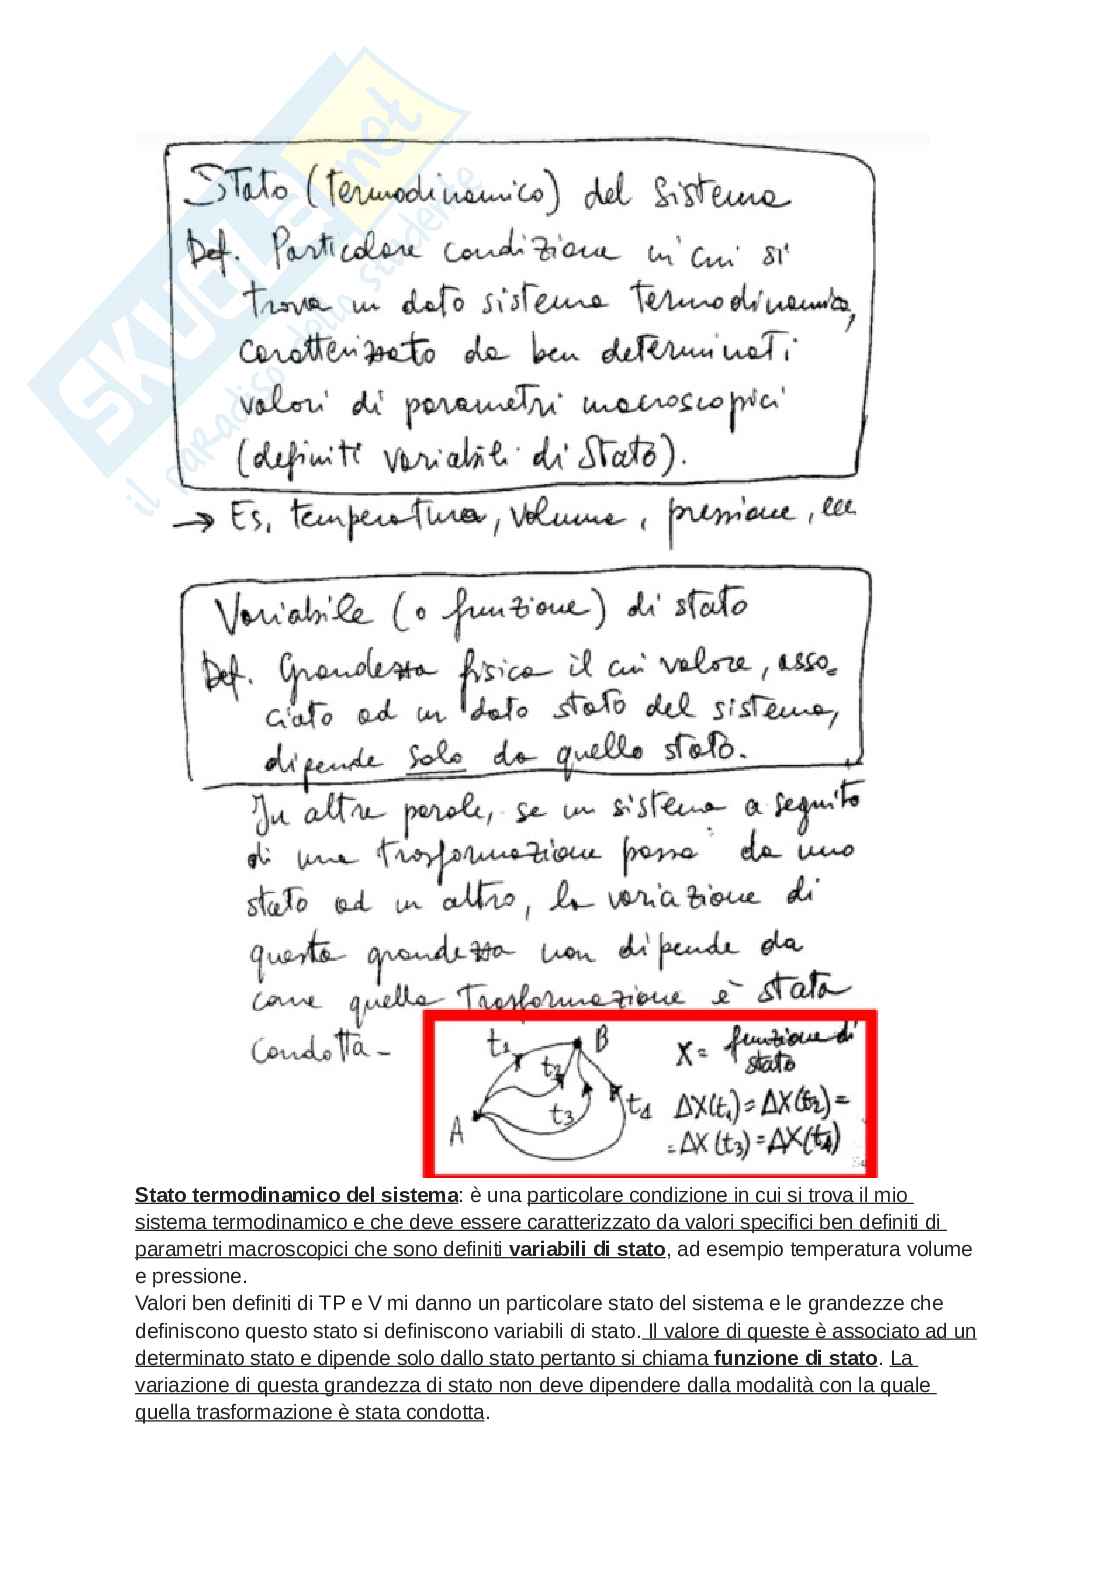 SKUOLA.net
il paradiso dello studente
Stato (termodinamico) del sistema
Def. Particolare condizione in cui si
trova un dato sistema termodinamico,
caratterizzato da ben determinati
valori di parametri macroscopici
(definiti variabili di Stato).
→ Es. temperatura, volume, pressione, ecc
Variabile (o funzione) di stato
Def. Grandezza fisica il cui valore, asso-
ciato ad un dato stato del sistema,
dipende solo da quello stato.
In altre parole, se un sistema a seguito
di una trasformazione passa da uno
stato ad un altro, la variazione di
questa grandezza non dipende da
come quella trasformazione è stata
condotta -
t1 B
t2
t3 t4
A
X = funzione di
stato
ΔX(t1) = ΔX(t2) =
= ΔX(t3) = ΔX(t4)
Stato termodinamico del sistema: è una particolare condizione in cui si trova il mio
sistema termodinamico e che deve essere caratterizzato da valori specifici ben definiti di
parametri macroscopici che sono definiti variabili di stato, ad esempio temperatura volume
e pressione.
Valori ben definiti di TP e V mi danno un particolare stato del sistema e le grandezze che
definiscono questo stato si definiscono variabili di stato. Il valore di queste è associato ad un
determinato stato e dipende solo dallo stato pertanto si chiama funzione di stato. La
variazione di questa grandezza di stato non deve dipendere dalla modalità con la quale
quella trasformazione è stata condotta.